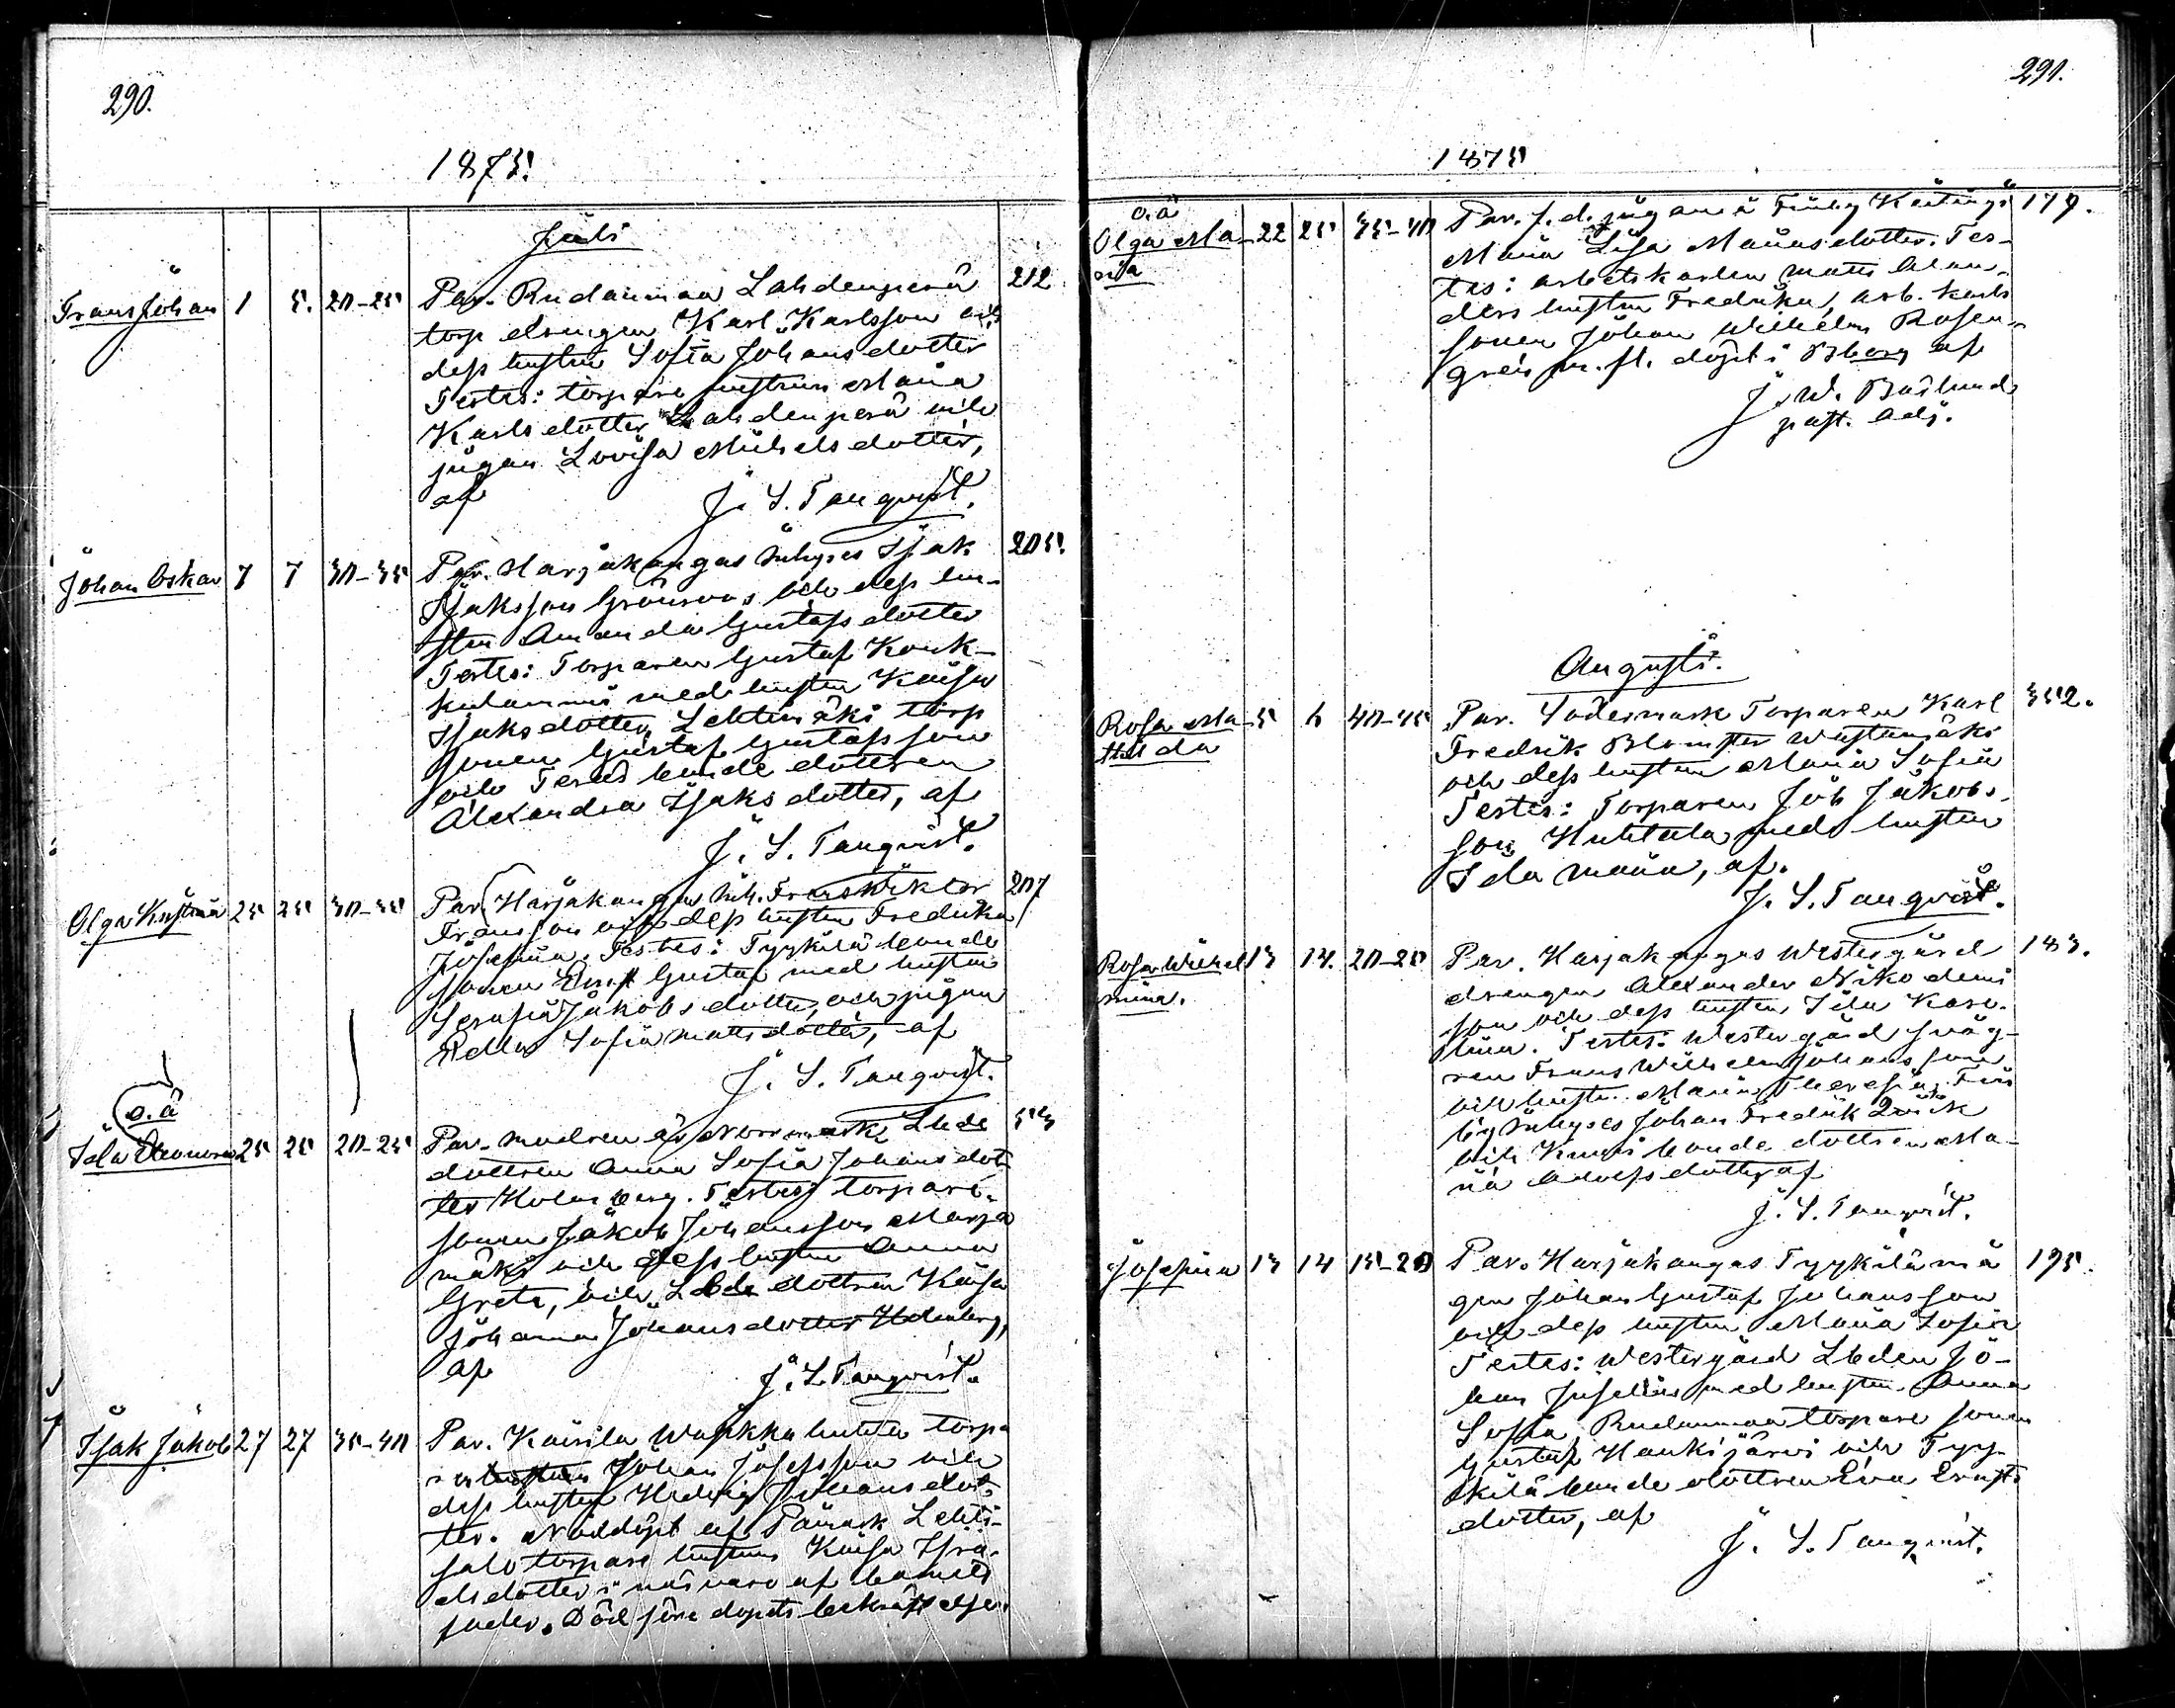 290.
1875.
Juli
Frans Johan 1 5. 20-25 Par. Rudanmaa Lahdenperä 212
torp drengen Karl Karlsson och
dess hustru Sofia Johansdotter
Testes: torpare hustrun Maria
Karlsdotter Lahdenperä och
pigan Lovisa Michelsdotter,
af J. S. Tanqvist.
Johan Oskar 7 7 30-35 Par. Harjakangas Inhyses Isak 205.
Isaksson Grönroos och dess hu-
stru Amanda Gustafsdotter
Testes: Torparen Gustaf Kouk-
kulammi med hustru Kaisa
Isaksdotter, Lehtimäki torp
sonen Gustaf Gustafsson
och bonde dottren
Alexandra Isaksdotter, af
J. S. Tanqvist.
Olga Kristina 25 25 30-35 Par. Harjakangas Inh. Frans Wiktor 207
Fransson och dess hustru Fredrika
Josefina. Testes: Tyykilä bonde
sonen Ernst Gustaf med hustru
Serafia Jakobsdotter, och pigan
Sofia Mattsdotter, af
J. S. Tanqvist.
o.ä
Ida Eleonora 25 25 20-25 Par. modren är Norrmark Lbde
dottren Anna Sofia Johansdot-
ter Holmberg. Testes: torpare-
sonen Jakob Johansson Marja
mäki och dess hustru Anna
Greta, och Lbde dottren Kaisa
Johanna Johansdotter Holmberg,
af J. S. Tanqvist.
Isak Jakob 27 27 35-40 Par. Kairila torpa
ren Johan Josefsson och
dess hustru Hedvig Johansdot-
ter. Nöddöpt af Påmark Lehti-
salo torpare hustrun Kaisa Isra-
elsdotter i närvaro af barnets
fader. Död före dopets bekräftelse.
291.
1875
o.ä
Olga Ma- 22 25 35-40 Par. f.d. pigan å 179.
ria Maria Lisa Mattsdotter. Tes-
tes: arbetskarlen Matts
ders hustru Fredrika, arb. karls
sonen Johan Wilhelm Rosen-
gren m. fl. döpt i Bborg af
J. W. Baslund
past. adj.
Augusti.
Rosa Ma- 5 6 40-45 Par. Södermark Torparen Karl 352.
thilda Fredrik Blomster
och dess hustru Maria Sofia
Testes: Torparen Joh Jakobs-
son Huhtala med hustru
Ida Maria, af.
J. S. Tanqvist.
Rosa Wilhel 13 14. 20-25 Par. Harjakangas Westergård 183.
mina. drengen Alexander Nikodemi
son och dess hustru Ida Karo-
lina. Testes: Westergård svåg-
ren Frans Wilhelm Johansson
och hustru Maria Theresia,
by Inhyses Johan Fredrik
och bonde dottren Ma-
ria Adolfsdotter af
J. S. Tanqvist.
Josefina 13 14 15-20 Par. Harjakangas Tyykilä må 195.
gen Johan Gustaf Johansson
och dess hustru Maria Sofia
Testes: Westergård Lbden Jo-
han Juselius med hustru Anna
Sofia, Rudanmaa torpare sonen
Gustaf Haukijärvi och Tyy-
kilä bonde dottren Eva Ernsts
dotter, af
J. S. Tanqvist.